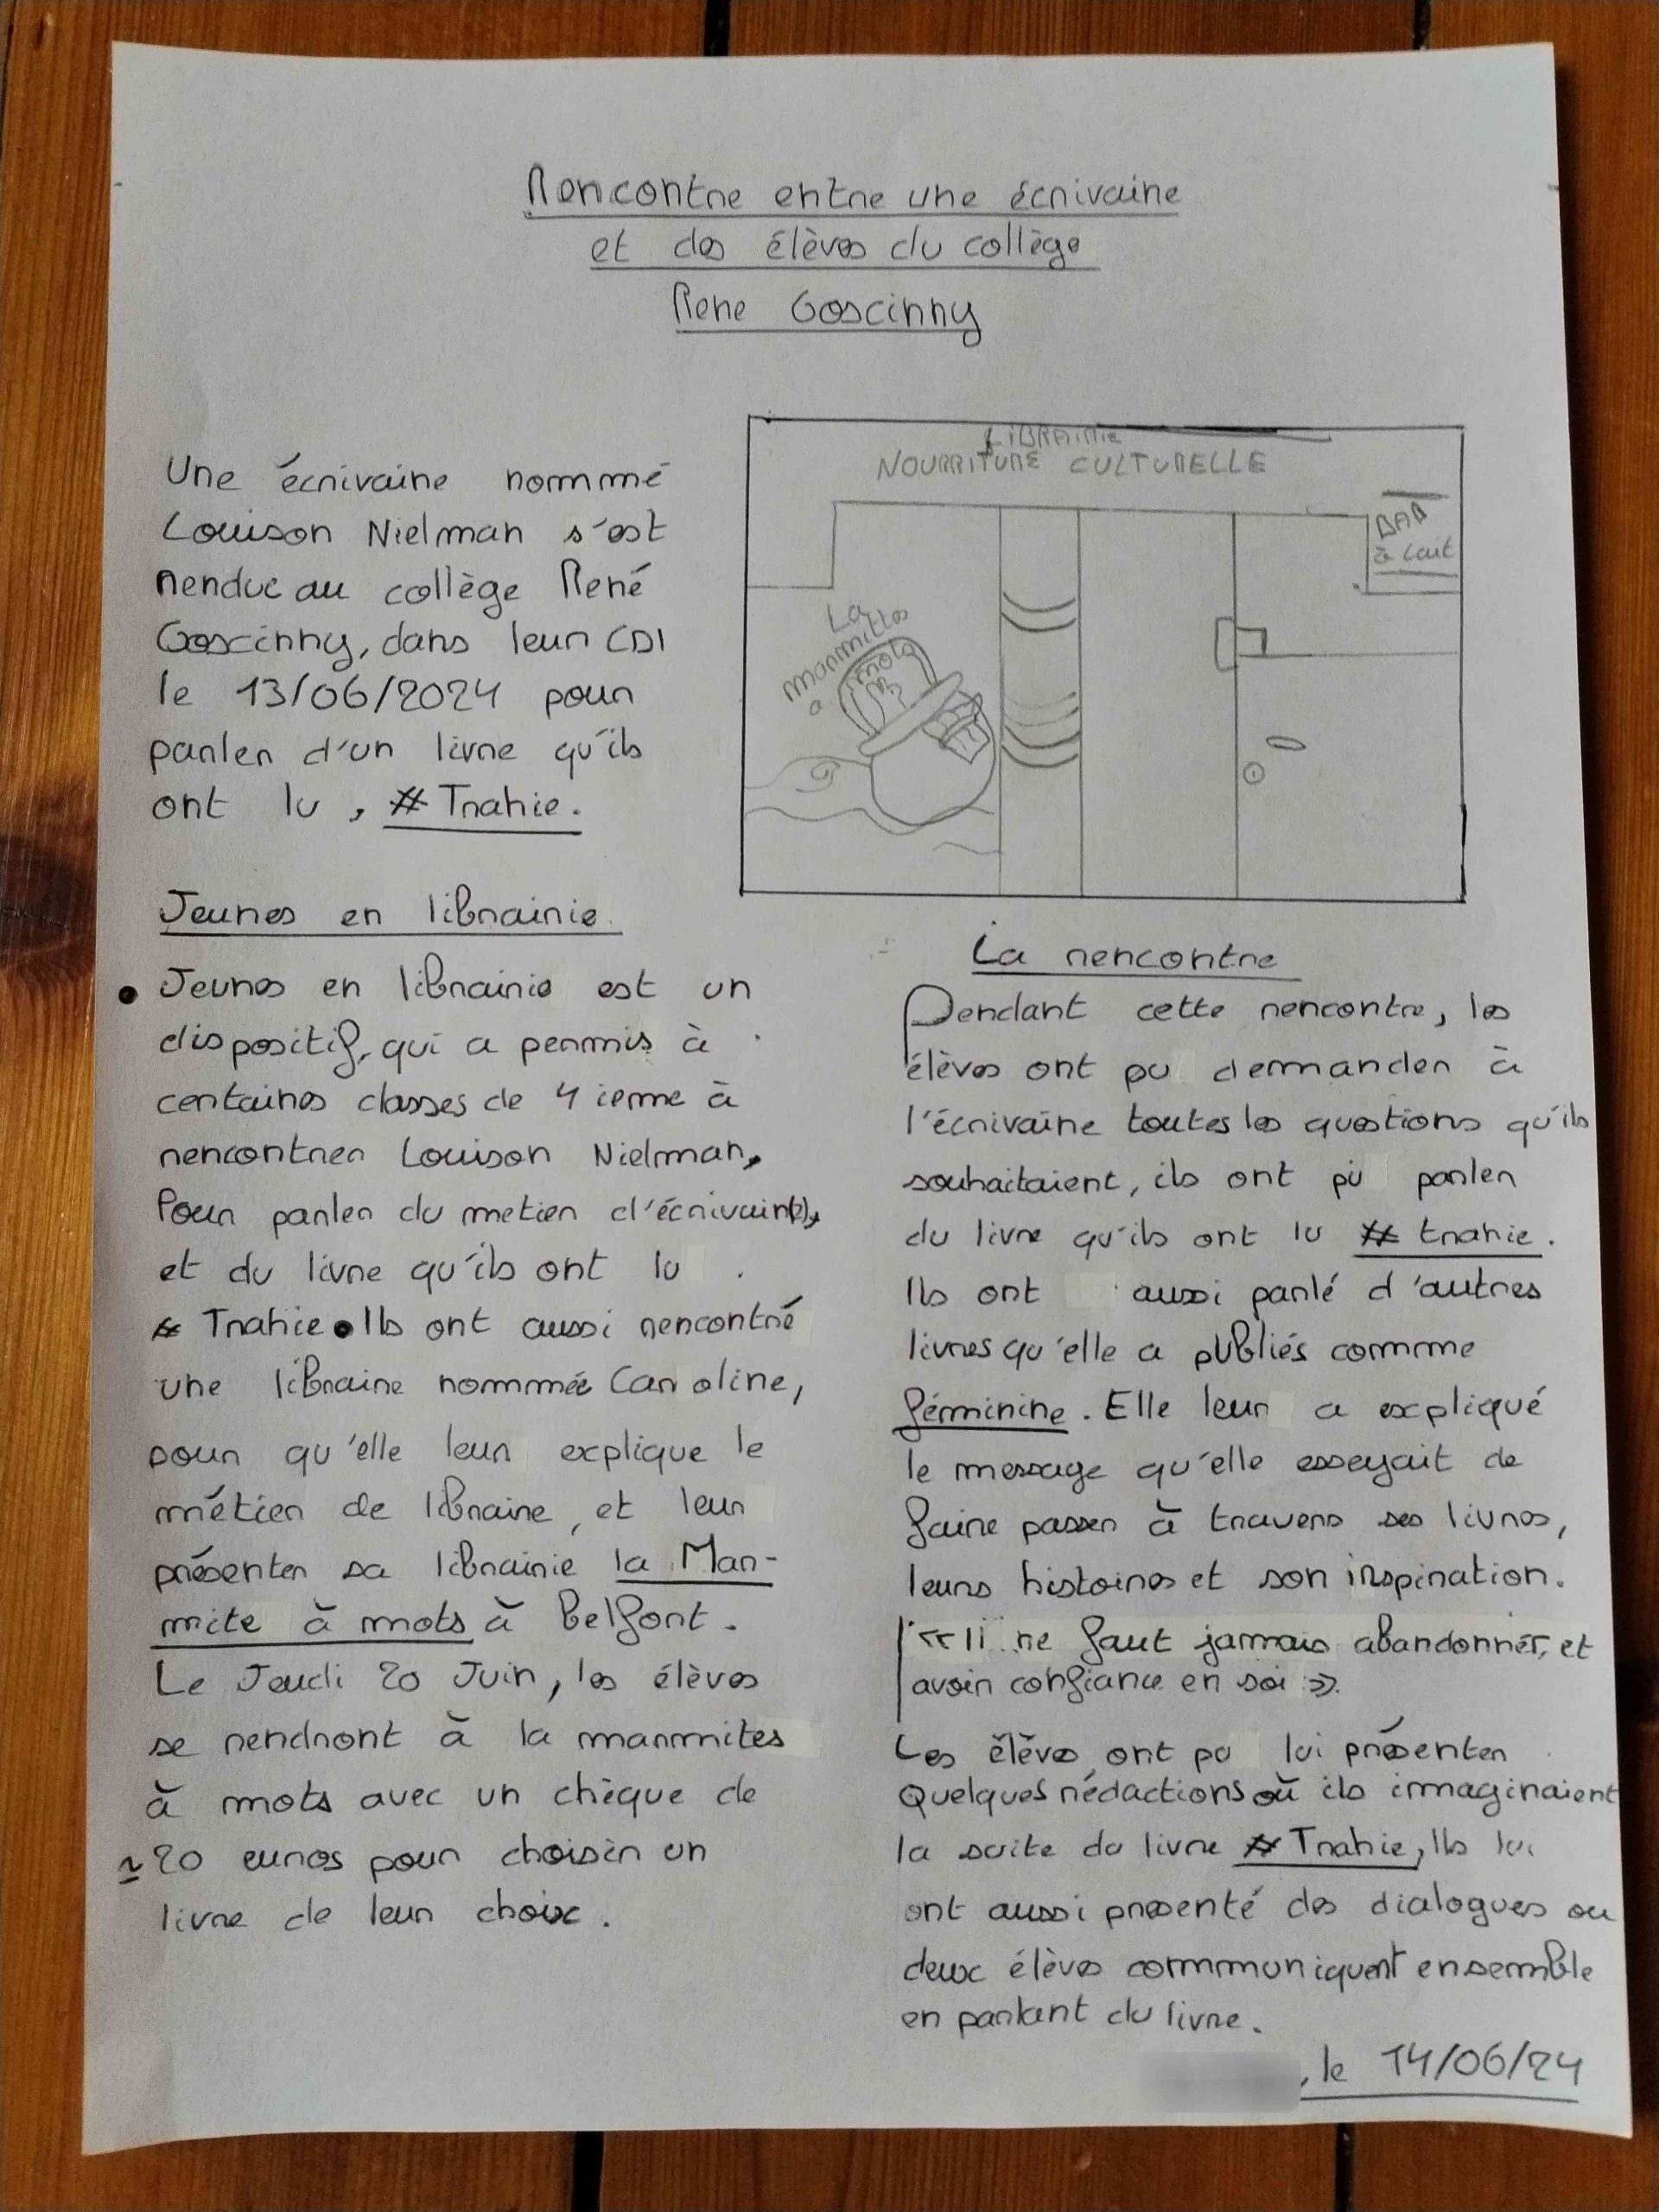 Rencontre entre une écrivaine
et des élèves du collège
Rene Goscinny
Une écrivaine nommé
Louison Nielman s'est
rendue au collège René
Goscinny, dans leur CDI
le 13/06/2024 pour
parler d'un livre qu'ils
ont lu, # Trahie.
LIBRAIRIE
NOURRITURE CULTURELLE
BAR
à Lait
La
marmittes
a
mots
Jeunes en librairie.
• Jeunes en librairie est un
dispositif, qui a permis à
certaines classes de 4 ieme à
rencontrer Louison Nielman,
Pour parler du metier d'écrivain(e),
et du livre qu'ils ont lu
# Trahie. Ils ont aussi rencontré
une libraire nommée Caroline,
pour qu'elle leur explique le
métier de libraire, et leur
présenter sa librairie la Mar-
mite à mots à Belfort.
Le Jeudi 20 Juin, les élèves
se rendront à la marmites
à mots avec un chèque de
~20 euros pour choisir un
livre de leur choix.
La rencontre
Pendant cette rencontre, les
élèves ont pu demander à
l'écrivaine toutes les questions qu'ils
souhaitaient, ils ont pû parler
du livre qu'ils ont lu # trahie.
Ils ont aussi parlé d'autres
livres qu'elle a publiés comme
féminine. Elle leur a expliqué
le message qu'elle esseyait de
faire passer à travers ses livres,
leurs histoires et son inspiration.
« Il ne faut jamais abandonner, et
avoir confiance en soi ».
Les élèves ont pu lui présenter
Quelques rédactions où ils immaginaient
la suite du livre # Trahie, Ils lui
ont aussi présenté des dialogues ou
deux élèves communiquent ensemble
en parlant du livre.
, le 14/06/24